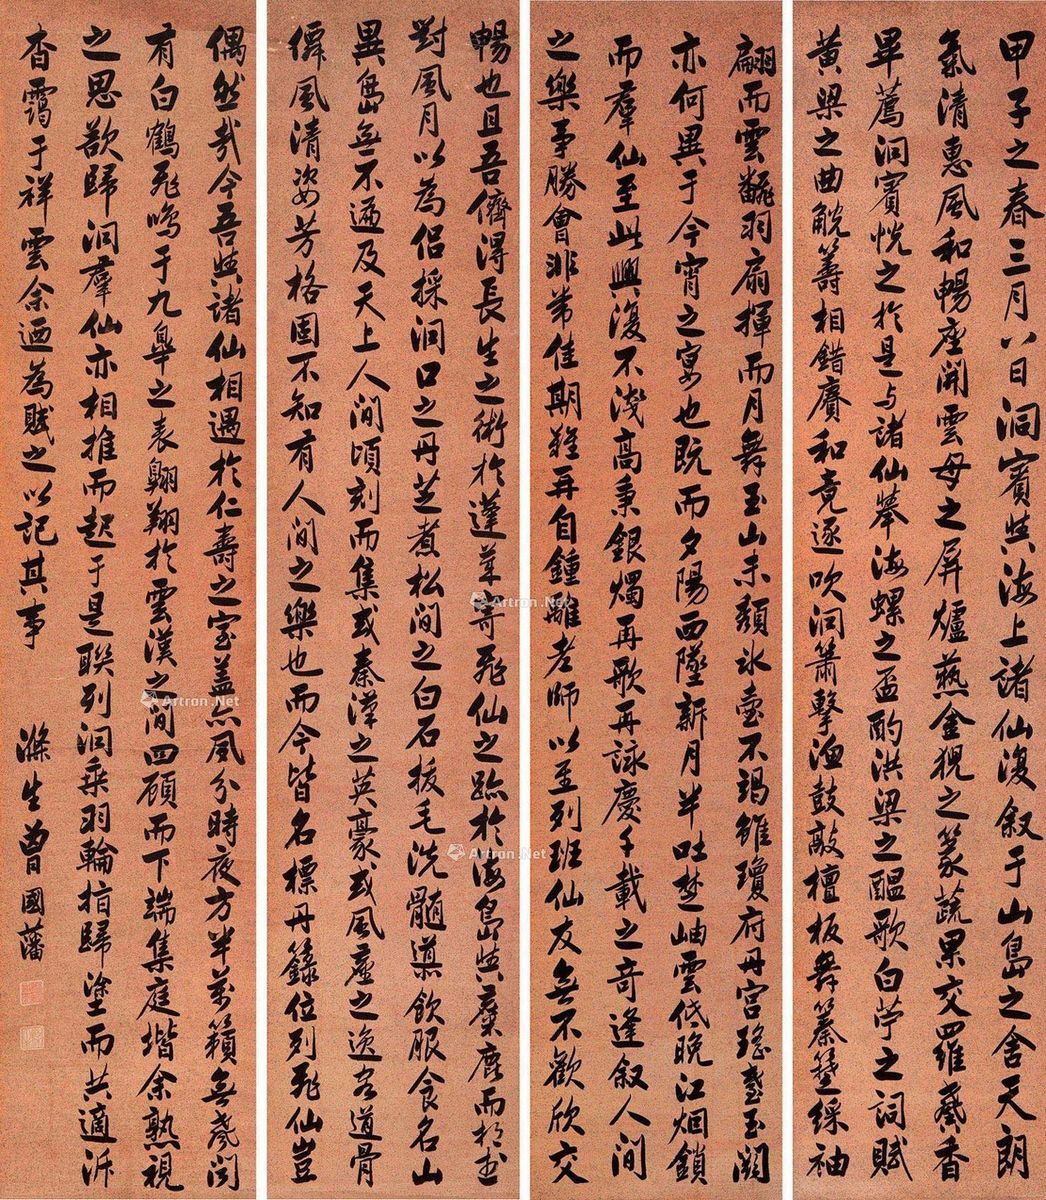 甲子之春三月八日洞賓與海上諸仙復叙于山島之舍天朗
氣清惠風和暢座開雲母之屏爐爇金猊之篆蔬果交羅蔵香
畢薦洞賓悅之於是与諸仙捧海螺之盃酌洪梁之醖歌白苧之詞賦
黃梁之曲觥籌相錯賡和竟逐吹洞簫擊漁鼓敲檀板舞綵袖
翩而雲翻羽扇揮而月舞玉山未頹氷壺不竭雖瓊府丹宮瑤臺玉闕
亦何異于今宵之宴也既而夕陽西墜新月半吐楚岫雲低晚江烟鎖
而羣仙至此興復不淺高秉銀燭再歌再詠慶千載之奇逢叙人間
之樂事勝會非常佳期難再自鍾離老師以至列班仙友無不歡欣交
暢也且吾儕得長生之術於蓬萊寄飛仙之跡於海島與麋鹿而相
對風月以為侶採洞口之丹芝煮松間之白石拔毛洗髓道飲服食名山
異島無不遍及天上人間頃刻而集或秦漢之英豪或風塵之逸客道骨
僊風清姿芳格固不知有人間之樂也而今皆名標丹籙位列飛仙豈
偶然哉今吾與諸仙相遇於仁壽之室盖夙分時夜方半萬籟無聲閃
有白鶴飛鳴于九皐之表翱翔於雲漢之間四顧而下端集庭堦余熟視
之思欲歸洞羣仙亦相推而起于是聯列洞乘羽輪指歸塗而共適泝
杳靄于祥雲余迺為賦之以記其事
滌生曾國藩
Artron.Net
Artron.Net
Artron.Net